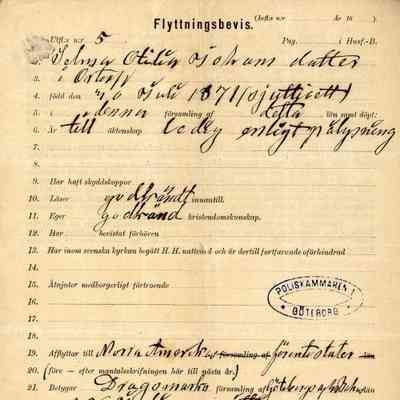 (Inflx n:r År 18 ).
Flyttningsbevis.
Utfl:s n:r 5 Pag. i Husf.-B.
Selma Otilia Johans dotter
3. i
4. född den 10 Juli 1871 (sjuttioett)
5. i denna församling af detta län samt döpt:
6. Är till äktenskap ledig enligt pålysning
7.
8.
9. Har haft skyddskoppor
10. Läser godkändt innantill.
11. Eger godkänd kristendomskunskap.
12. Har bevistat förhören
13. Har inom svenska kyrkan begått H. H. nattvard och är dertill fortfarande oförhindrad
14.
15. Åtnjuter medborgerligt förtroende
16.
17.
18.
POLISKAMMAREN I GÖTEBORG
19. Afflyttar till Norra Amerikas församling af förenta stater län
20. (före — efter mantalsskrifningen här till gästa år.)
21. Betygar Dragsmarks församling af Göteborgs och Bohus län